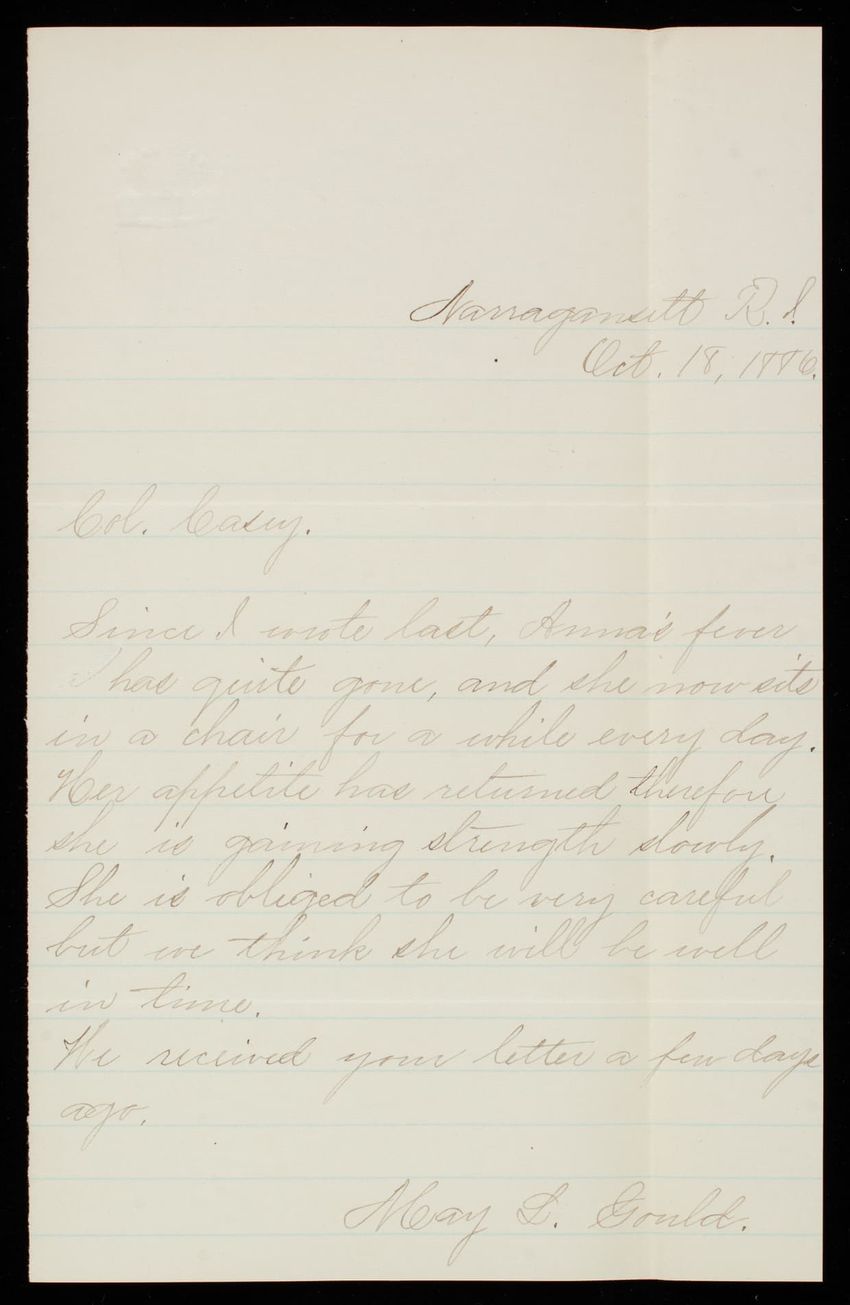 Narragansett R. I.
Oct. 18, 1886.
Col. Casey.
Since I wrote last, Anna's fever
has quite gone, and she now sits
in a chair for a while every day.
Her appetite has returned therefore
she is gaining strength slowly.
She is obliged to be very careful
but we think she will be well
in time.
We received your letter a few days
ago.
May L. Gould.